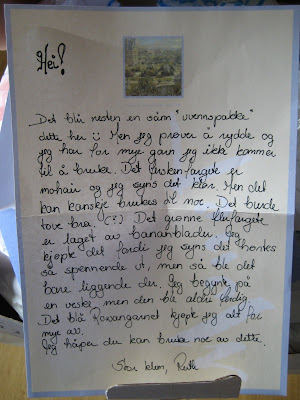 Hei!
Det blir nesten en sånn "uvennspakke"
dette her :) Men jeg prøver å rydde og
jeg har for mye garn jeg ikke kommer
til å bruke. Det ferskenfargete er
mohair og jeg syns det klør. Men det
kan kanskje brukes til noe. Det burde
tove bra. (??) Det grønne flerfargete
er laget av bananblader. Jeg
kjøpte det fordi jeg syns det hørtes
så spennende ut, men så ble det
bare liggende der. Jeg begynte på
en veske men den ble aldri ferdig.
Det blå Rowangarnet kjøpte jeg alt for
mye av.
Jeg håper du kan bruke noe av dette.
Stor klem, Ruth